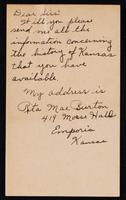 Dear Sir:
Will you please
send me all the
information concerning
the history of Kansas
that you have
available.
My address is
Rita Mae Burton
419 Morse Hall
Emporia
Kansas